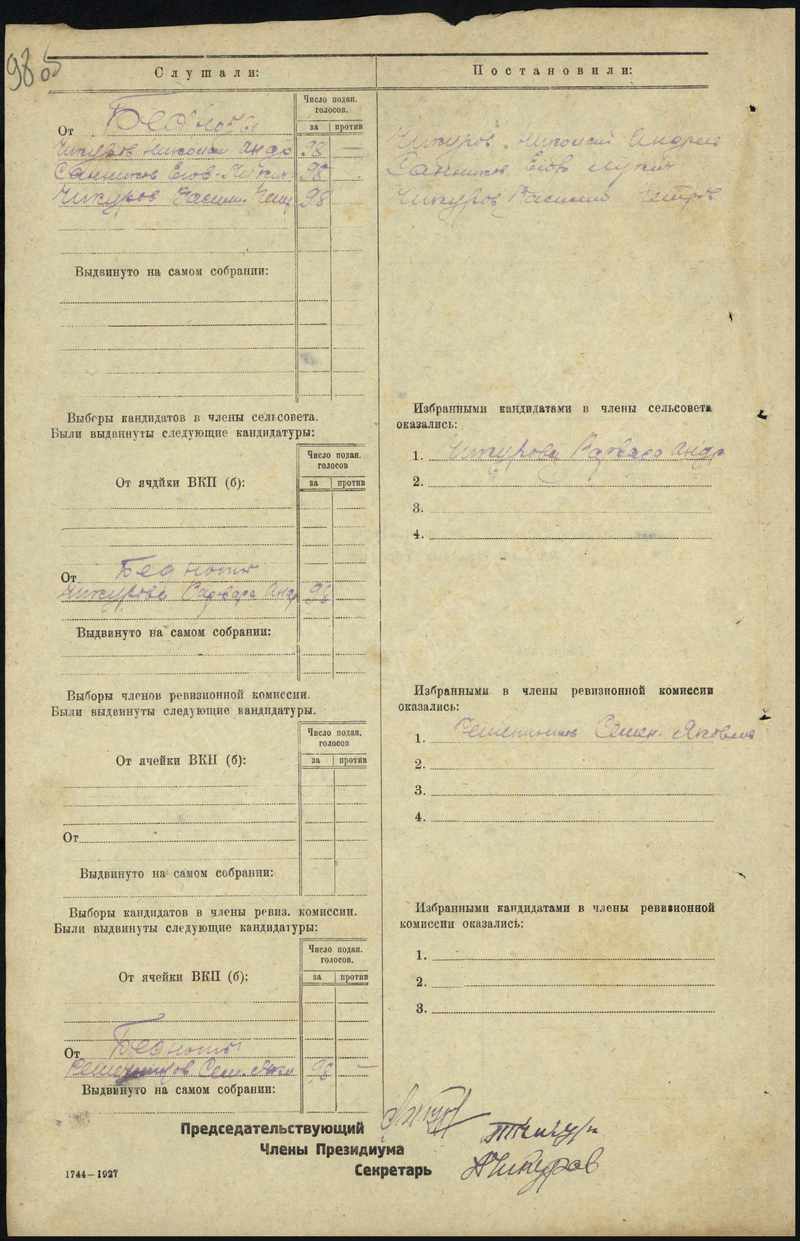 Слушали:
Постановили:
Число подан. голосов.
за против
От Бедноты
Чикуров Николай Андр 98 —
Санников Егор Лукич 98
Чикуров Васил. Петр 98
Чикуров Николай Андрее
Санников Егор Лукич
Чикуров Василий Петров
Выдвинуто на самом собрании:
Выборы кандидатов в члены сельсовета.
Были выдвинуты следующие кандидатуры:
Число подан. голосов
за против
От ячдйки ВКП (б):
От Бедноты
Чикурова Варвара Андр 98
Выдвинуто на самом собрании:
Избранными кандидатами в члены сельсовета
оказались:
1. Чикурова Варвара Андр
2.
3.
4.
Выборы членов ревизионной комиссии.
Были выдвинуты следующие кандидатуры.
Число подан. голосов
за против
От ячейки ВКП (б):
От
Выдвинуто на самом собрании:
Избранными в члены ревизионной комиссии
оказались:
1. Семен Яковлев
2.
3.
4.
Выборы кандидатов в члены ревиз. комиссии.
Были выдвинуты следующие кандидатуры:
Число подан. голосов.
за против
От ячейки ВКП (б):
От Бедноты
98 —
Выдвинуто на самом собрании:
Избранными кандидатами в члены ревизионной
комиссии оказались:
1.
2.
3.
Председательствующий
Члены Президиума
Секретарь Чикуров
1744—1927